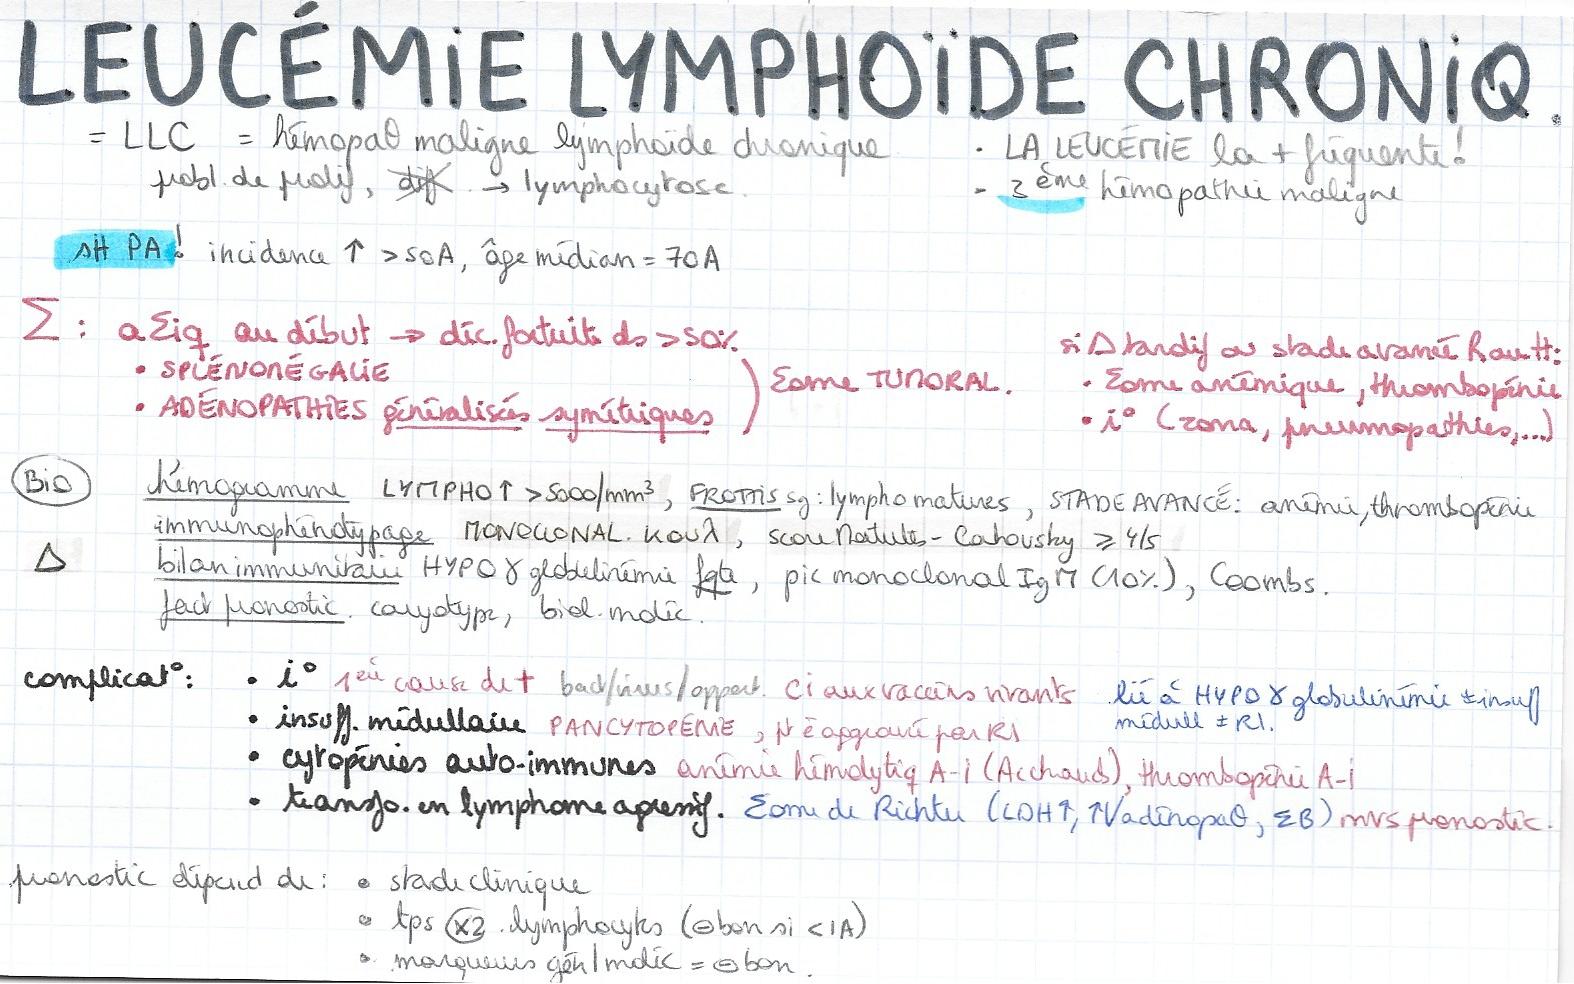 LEUCÉMIE LYMPHOÏDE CHRONIQ.
= LLC = hémopaθ maligne lymphoïde chronique
probl. de prolif, → lymphocytose.
· LA LEUCÉMIE la + fréquente!
- 3ème hémopathie maligne
SH PA! incidence ↑ >50A, âge médian = 70A
Σ : aΣiq au début → déc. fortuite ds >50%
• SPLÉNOMÉGALIE
• ADÉNOPATHIES généralisées symétriques
Σome TUMORAL.
si Δ tardif ou stade avancé
• Σome anémique, thrombopénie
• i° (zona, pneumopathies,...)
Bio
hémogramme LYMPHO↑ >5000/mm³, FROTTIS sg: lympho matures, STADE AVANCÉ: anémie, thrombopénie
immunophénotypage MONOCLONAL. κ ou λ, score Matutes-Catovsky ≥ 4/5
Δ
bilan immunitaire HYPO γ globulinémie fqte, pic monoclonal IgM (10%), Coombs.
fact pronostic. caryotype, biol. moléc.
complicat°: • i° 1ère cause de † bact/virus/opport. CI aux vaccins vivants lié à HYPO γ globulinémie ± insuff
médull ± R1.
• insuff. médullaire PANCYTOPÉNIE, pt ê aggravé par R1
• cytopénies auto-immunes anémie hémolytiq A-i (Ac chauds), thrombopénie A-i
• transfo. en lymphome agressif. Σome de Richter (LDH↑, ↑V adénopaθ, ΣB) mvs pronostic.
pronostic dépend de : • stade clinique
• tps x2 . lymphocytes (⊖ bon si <1A)
• marqueurs gén/moléc = ⊖ bon.